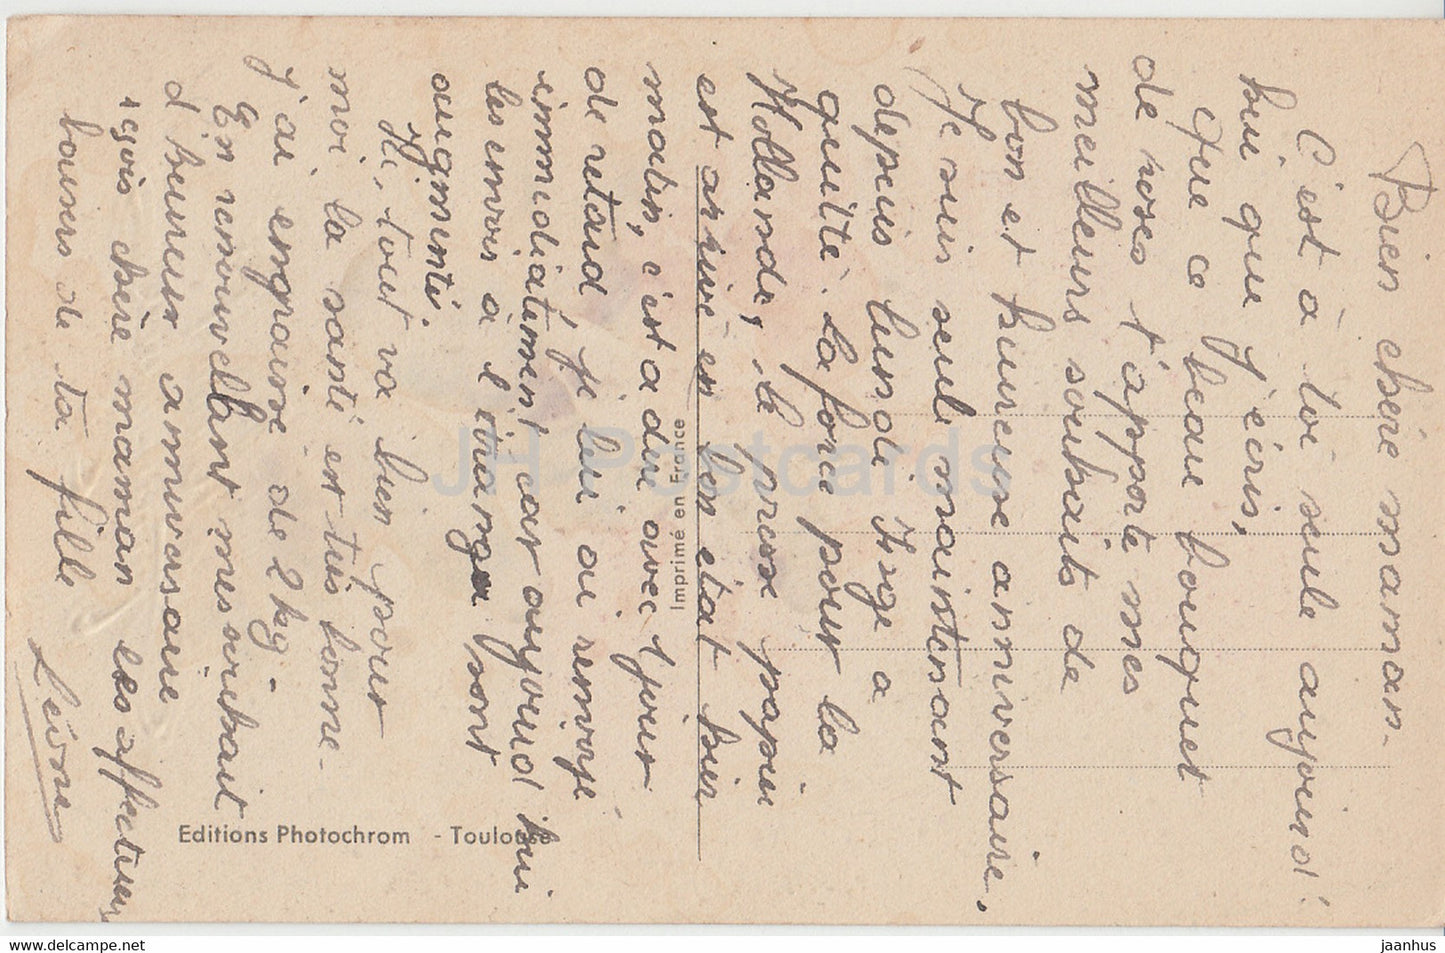 Bien chère maman.
C'est à toi seule aujourd'
hui que j'écris,
Que ce beau bouquet
de roses t'apporte mes
meilleurs souhaits de
bon et heureuse anniversaire.
Je suis seule maintenant
depuis lundi Inge a
quitté la force pour la
Hollande, le prem papier
est arrivé en bon état hier
matin, c'est a dire avec 1 jour
de retard je lui ai renvoyé
immediatement car aujourd hui
les envois à l'étranger sont
augmenté.
Ici, tout va bien pour
moi, la santé est très bonne.
J'ai engraissé de 2 kg.
En renouvellant mes souhait
d'heureux anniversaire
reçois chère maman les affectueux
baisers de ta fille
Léone
Imprimé en France
Editions Photochrom - Toulouse
JH Postcards
www.delcampe.net
jaanhus